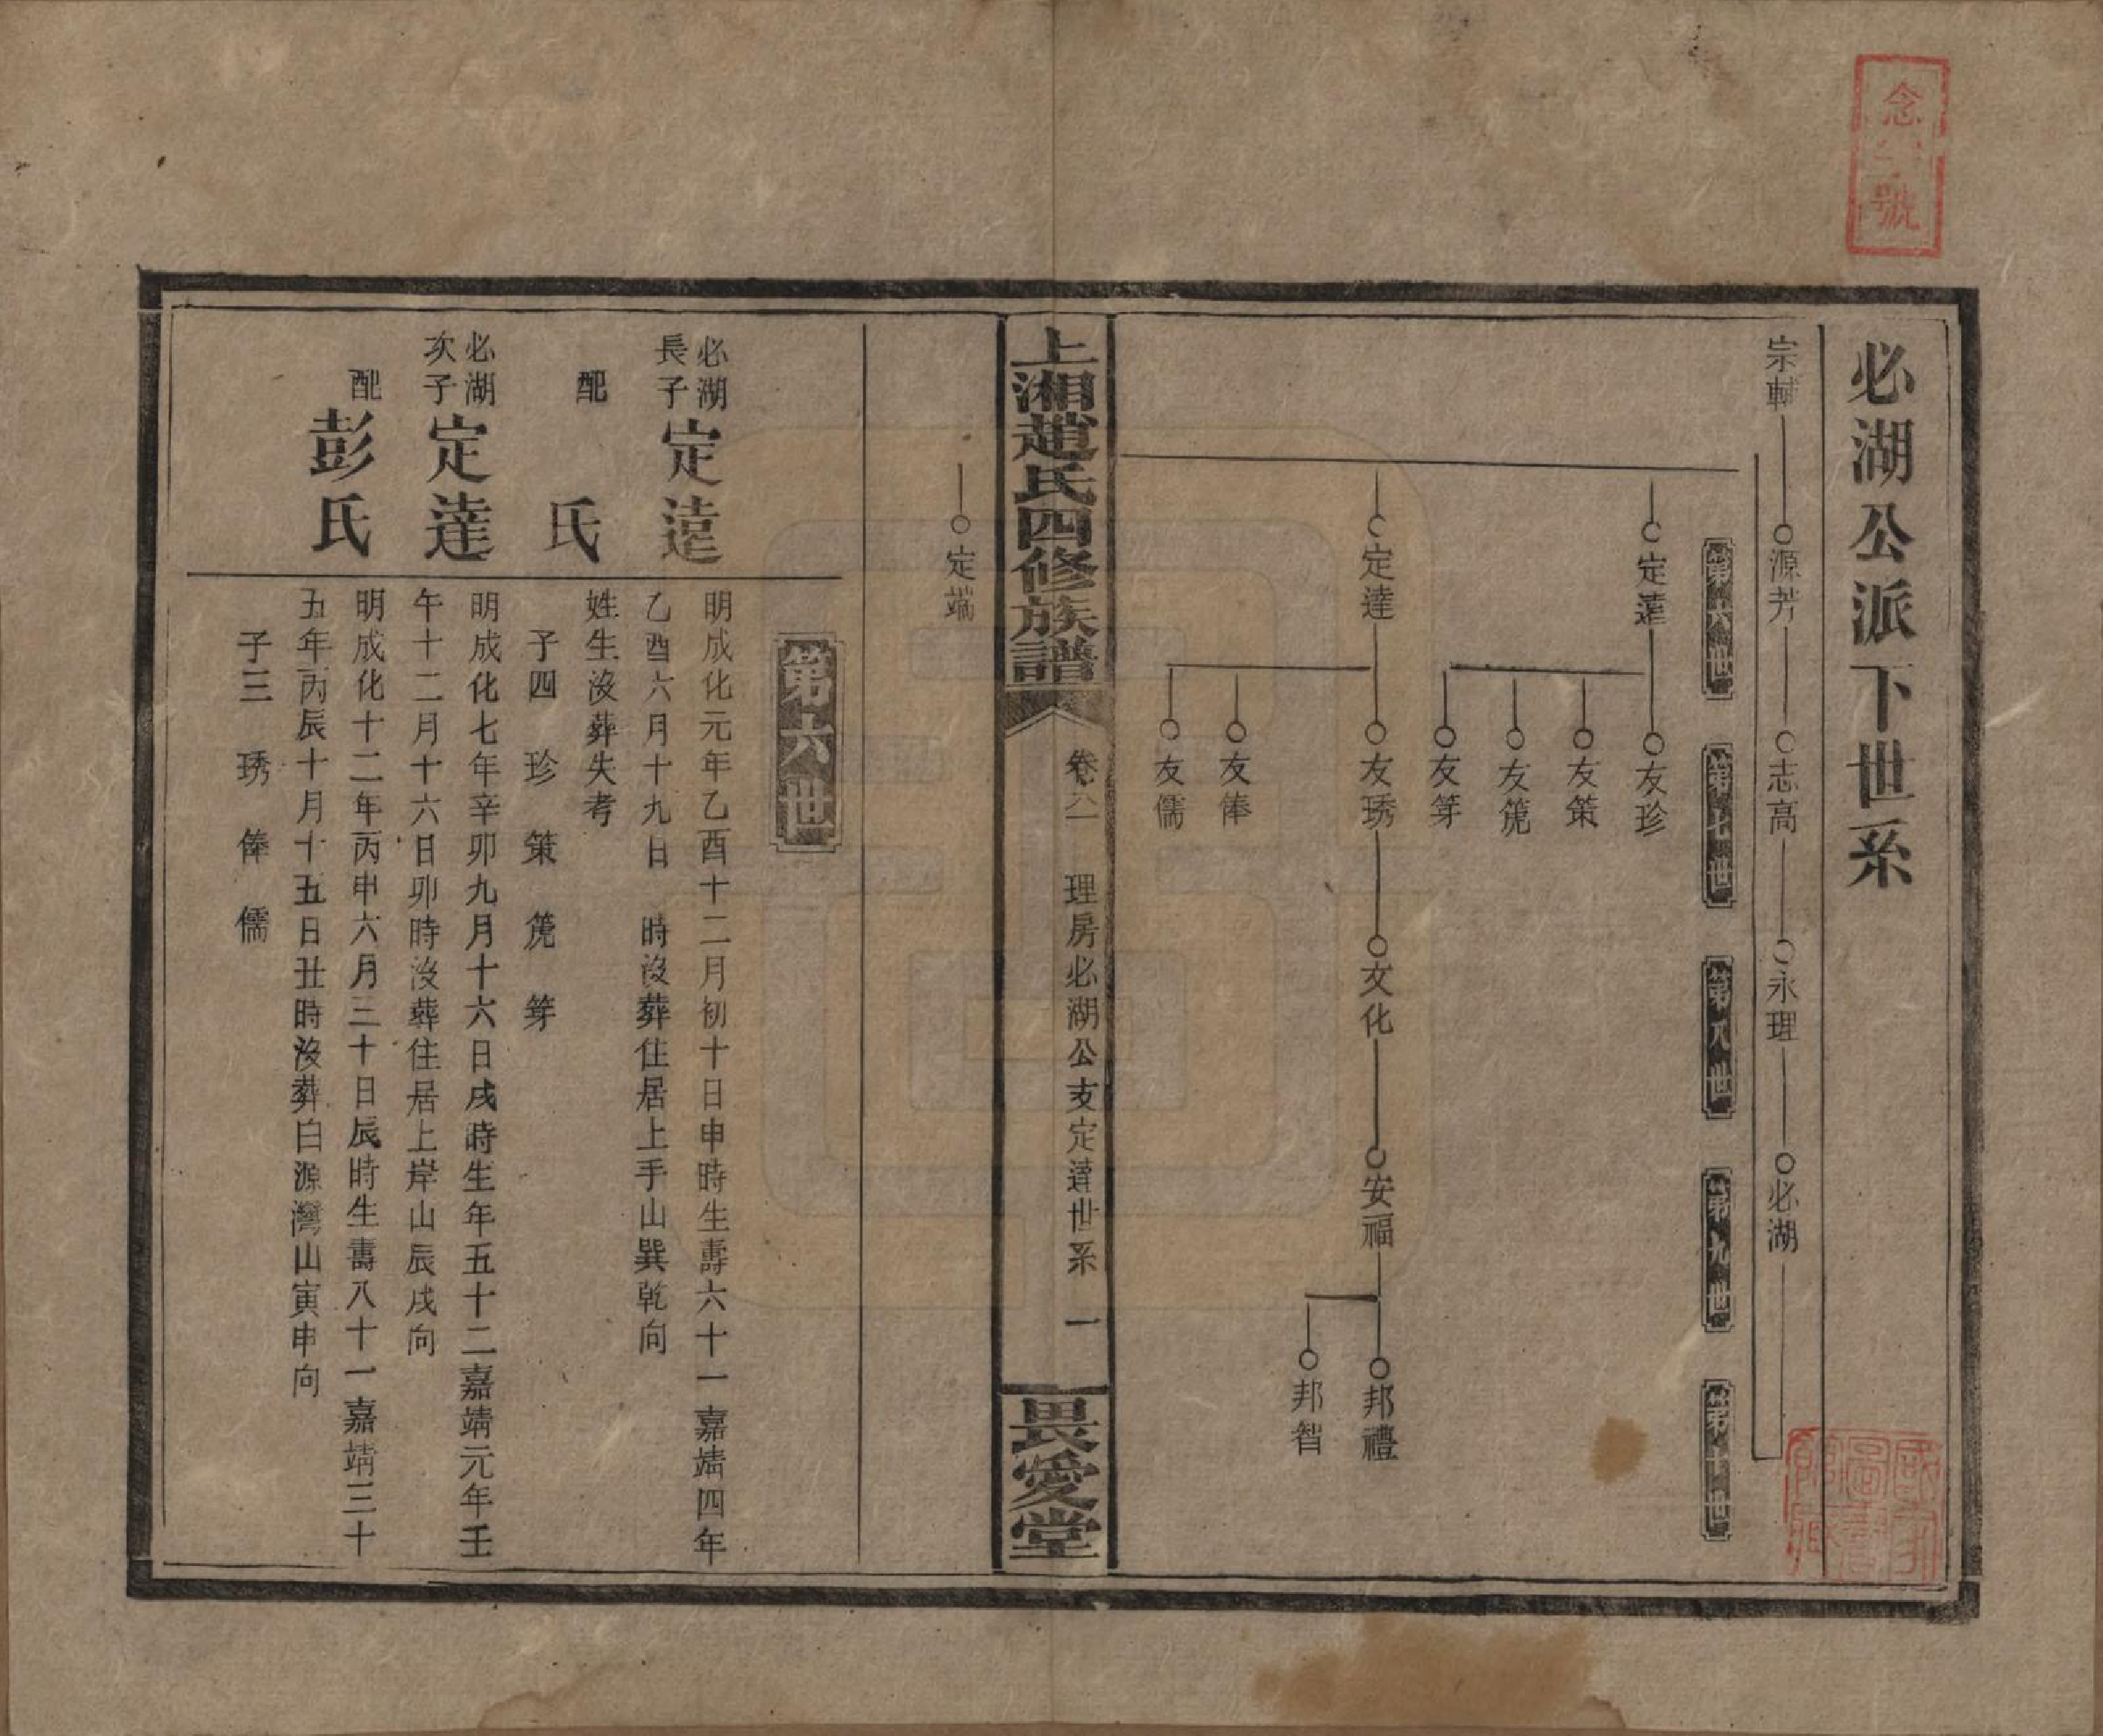 必湖公派下世系
宗輔 源芳 志高 永理 必湖
第六世 第七世 第八世 第九世 第十世
定逺 友珍
友策
友篪
友竽
定達 友琇 文化 安福 邦禮
邦智
友俸
友儒
上湘趙氏四修族譜
卷六 理房必湖公支定達世系 一
畏愛堂
定端
第六世
必湖長子 定逺
明成化元年乙酉十二月初十日申時生壽六十一嘉靖四年
乙酉六月十九日 時沒葬住居上手山巽乾向
配 氏
姓生沒葬失考
子四 珍 策 篪 竽
必湖次子 定達
明成化七年辛卯九月十六日戌時生年五十二嘉靖元年壬
午十二月十六日卯時沒葬住居上岸山辰戌向
配 彭氏
明成化十二年丙申六月三十日辰時生壽八十一嘉靖三十
五年丙辰十月十五日丑時沒葬白源灣山寅申向
子三 琇 俸 儒